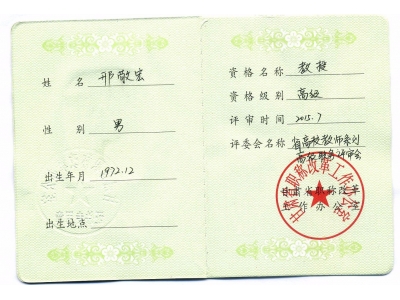 姓 名 邢敬宏
性 别 男
出生年月 1972.12
出生地点
资格名称 教授
资格级别 高级
评审时间 2015.7
评委会名称 省高校教师系列
高级职务评审会
甘肃省职称改革工作办公室
甘肃省职称改革
工作办公室